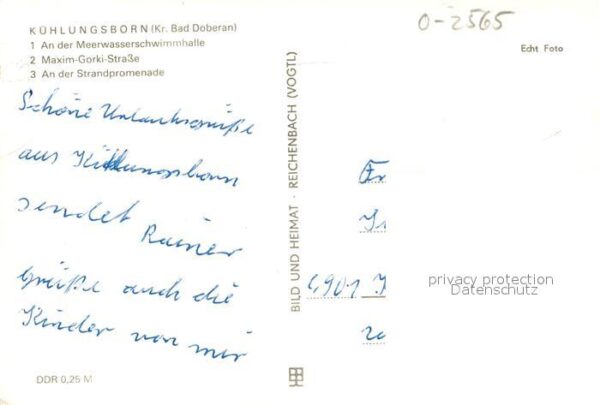 KÜHLUNGSBORN (Kr. Bad Doberan)
1 An der Meerwasserschwimmhalle
2 Maxim-Gorki-Straße
3 An der Strandpromenade
Schöne Urlaubsgrüße
aus Kühlungsborn
sendet Rainer
Grüße auch die
Kinder von mir
DDR 0,25 M
BILD UND HEIMAT · REICHENBACH (VOGTL)
0-2565
Echt Foto
privacy protection
Datenschutz